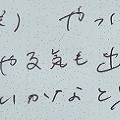 ) やっ
や る気も出
いかなと